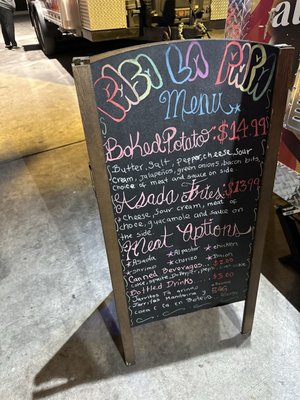 Pa La Papa
Menu
Baked Potato $14.99
Butter, Salt, Pepper, cheese, Sour
cream, jalapeños, green onions, bacon bits,
choice of meat and sauce on side.
Asada Fries $13.99
Cheese, Sour cream, meat of
choice, guacamole and sauce on
the side.
Meat Options
★Asada ★Al pastor ★chicken
★shrimp ★chorizo ★Bacon
Canned Beverages $2.50
Bottled Drinks $5.00
Jarritos
Jarritos
coca